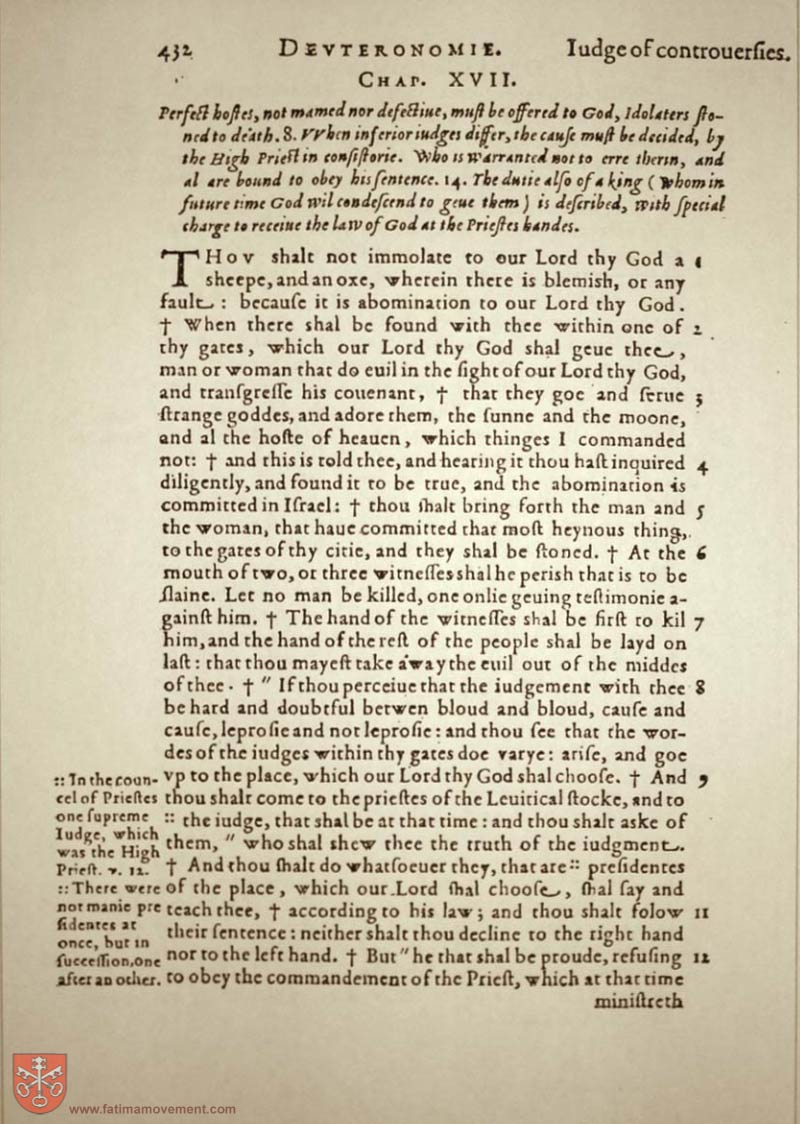 432 DEVTERONOMIE. Iudge of controuerſies.
CHAP. XVII.
Perfect hoſtes, not mamed nor defectiue, muſt be offered to God, Idolaters ſto-
ned to death. 8. VVhen inferior iudges differ, the cauſe muſt be decided, by
the High Prieſt in conſiſtorie. Who is warranted not to erre therin, and
al are bound to obey his ſentence. 14. The dutie alſo of a king (Whom in
future time God wil condeſcend to geue them) is deſcribed, with ſpecial
charge to receiue the law of God at the Prieſtes handes.
THOV shalt not immolate to our Lord thy God a 1
sheepe, and an oxe, wherein there is blemish, or any
fault: becauſe it is abomination to our Lord thy God.
† When there shal be found with thee within one of 2
thy gates, which our Lord thy God shal geue thee,
man or woman that do euil in the ſight of our Lord thy God,
and tranſgreſſe his couenant, † that they goe and ſerue 3
ſtrange goddes, and adore them, the ſunne and the moone,
and al the hoſte of heauen, which thinges I commanded
not: † and this is told thee, and hearing it thou haſt inquired 4
diligently, and found it to be true, and the abomination is
committed in Iſrael: † thou ſhalt bring forth the man and 5
the woman, that haue committed that moſt heynous thing,
to the gates of thy citie, and they shal be ſtoned. † At the 6
mouth of two, or three witneſſes shal he perish that is to be
ſlaine. Let no man be killed, one onlie geuing teſtimonie a-
gainſt him. † The hand of the witneſſes shal be firſt to kil 7
him, and the hand of the reſt of the people shal be layd on
laſt: that thou mayeſt take away the euil out of the middes
of thee. † " If thou perceiue that the iudgement with thee 8
be hard and doubtful betwen bloud and bloud, cauſe and
cauſe, leproſie and not leproſie: and thou ſee that the wor-
des of the iudges within thy gates doe varye: ariſe, and goe
vp to the place, which our Lord thy God shal chooſe. † And 9
thou shalt come to the prieſtes of the Leuitical ſtocke, and to
:: the iudge, that shal be at that time: and thou shalt aske of
them, " who shal shew thee the truth of the iudgment.
† And thou ſhalt do whatſoeuer they, that are :: preſidentes
of the place, which our Lord ſhal chooſe, ſhal ſay and
teach thee, † according to his law; and thou shalt folow 11
their ſentence: neither shalt thou decline to the right hand
nor to the left hand. † But " he that shal be proude, refuſing 12
to obey the commandement of the Prieſt, which at that time
miniſtreth
:: In the coun-
cel of Prieſtes
one ſupreme
Iudge, which
was the High
Prieſt. v. 12.
:: There were
not manie pre
ſidentes at
once, but in
ſucceſſion, one
after an other.
www.fatimamovement.com